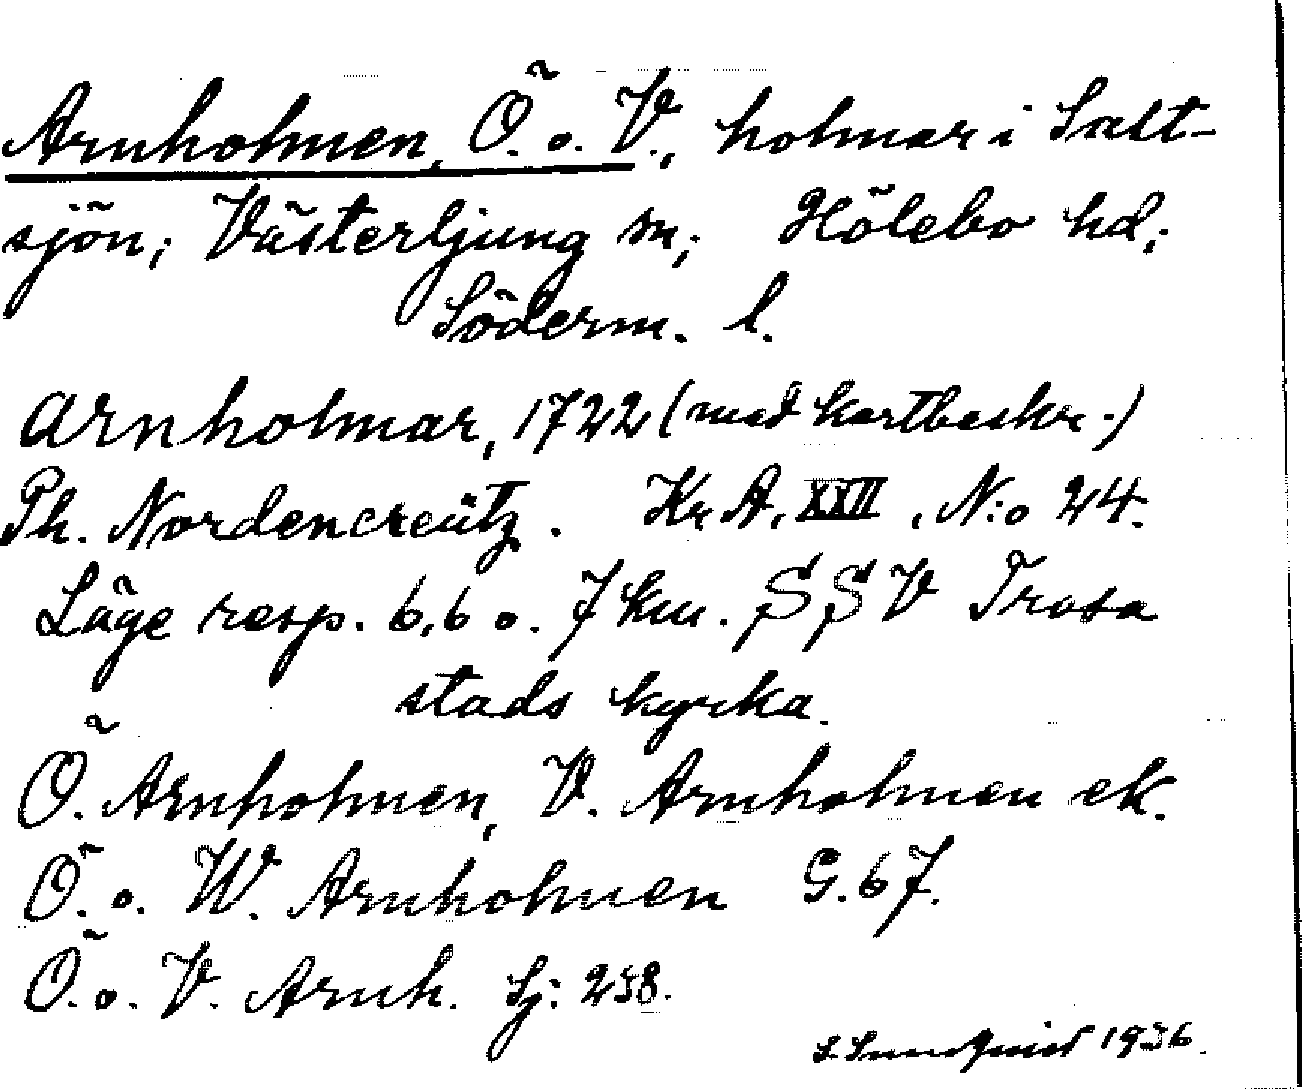 Arnholmen, Ö. o. V., holmar i Salt-
sjön; Västerljung sn; Hölebo hd;
Söderm. l.
Arnholmar, 1722 (med kartbeskr.)
Ph. Nordencreütz. Kr. A. XXII, N:o 24.
Läge resp. 6,6 o. 7 km. SSV Trosa
stads kyrka.
Ö. Arnholmen, V. Arnholmen ek.
Ö. o. W. Arnholmen G. 67.
Ö. o. V. Arnh. Sj: 238.
S. Sundquist 1936.